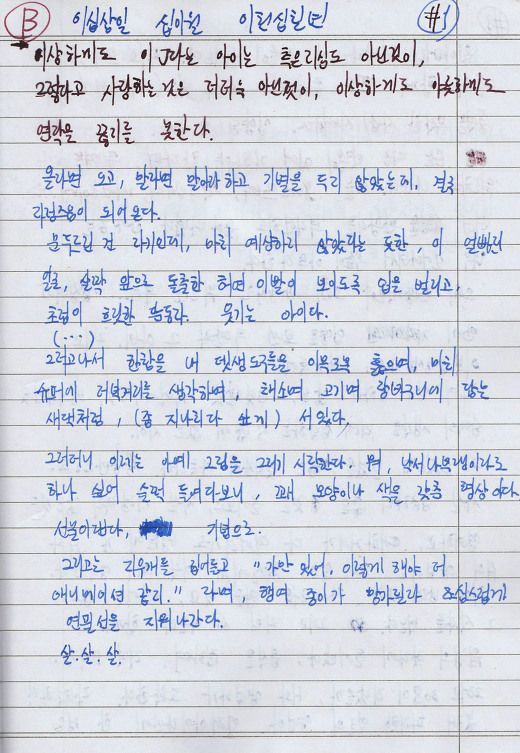 B 이십삼일 십이월 이천십일년 #1
이상하게도 이 J라는 아이는 흐리심도 아닌것이,
그렇다고 사랑하는 것은 더더욱 아닌것이, 이상하게도 야릇하게도
연락을 끊지를 못한다.
올라면 오고, 말라면 말아라하고 기별을 두지 않았는데, 결국
리듬즈음이 되어 온다.
문두드린 건 자기인데, 마치 예상하지 않았다는 듯한, 이 얼빠진
얼굴, 살짝 앞으로 돌출한 하얀 이빨이 보이도록 입을 벌리고,
초점이 흐릿한 눈동자. 웃기는 아이다.
(...)
그러고나서 한참을 내 뎃생도구들을 이목조목 훑으며, 마치
슈퍼에 저녁거리를 생각하며, 채소며 고기며 장바구니에 담는
새댁처럼, (좀 지나리다 싶게) 서있다.
그러더니 이제는 아예 그림을 그리기 시작한다. 뭐, 낙서나부랭이라도
하나 싶어 슬쩍 들여다보니, 꽤 모양이나 색을 갖춘 형상이다.
선물이랜다, 기념으로.
그리고는 지우개를 집어들고 "가만 있어, 이렇게 해야 더
애니메이션 같지." 라며, 행여 종이가 망가질라 조심스럽게
연필선을 지워나간다.
살.살.살.